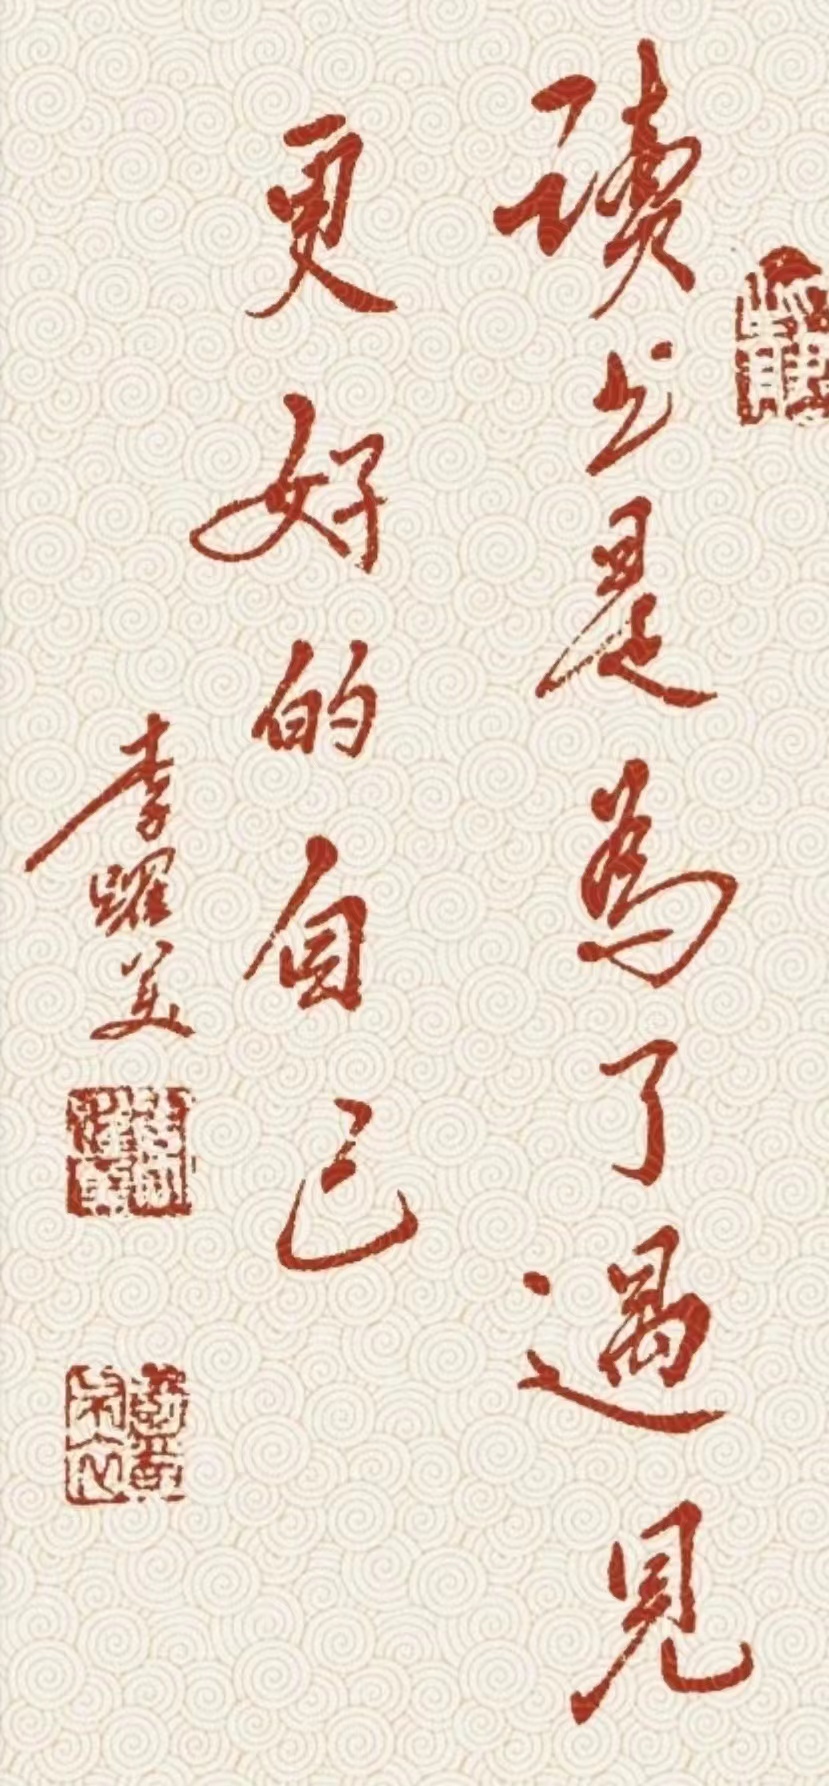 讀书是為了遇見
更好的自己
李躍美